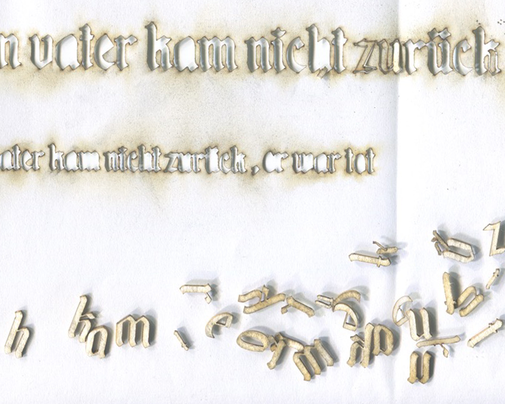 n vater kam nicht zurück
ater kam nicht zurück, er war tot
h kam